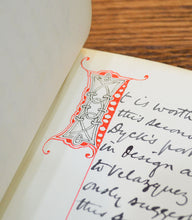 It is worth
this second
Dyck's port
in design a
to Velazquez
ously sugge
this